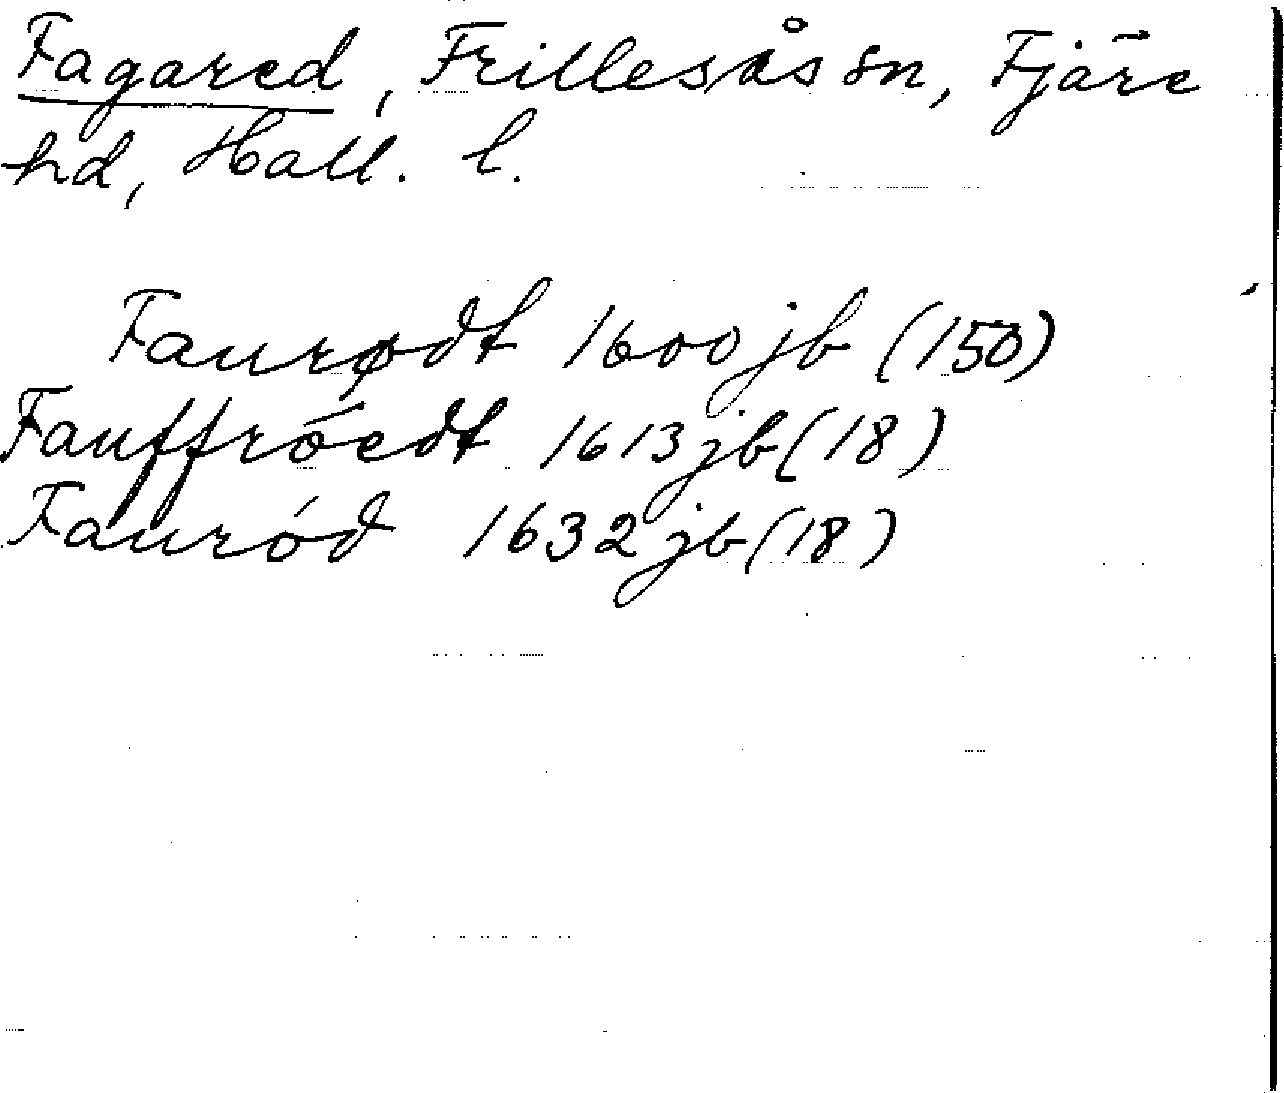 Fagared, Frillesås sn, Fjäre
hd, Hall. l.
Faurødt 1600 jb (150)
Fauffróedt 1613 jb (18)
Fauród 1632 jb (18)